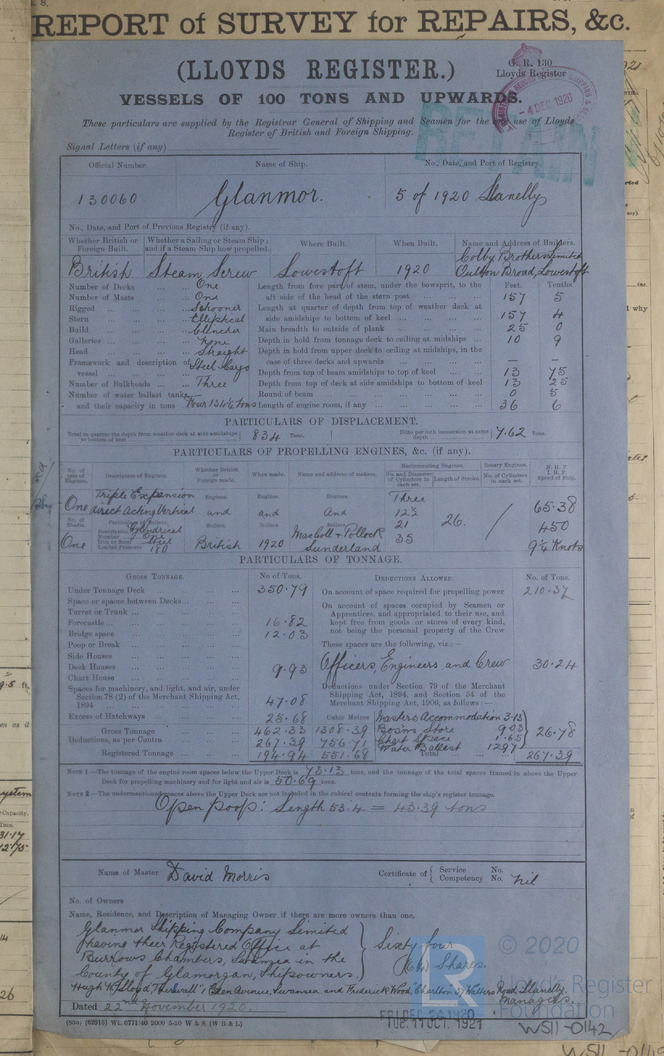 REPORT of SURVEY for REPAIRS, &c.
(LLOYDS REGISTER.)
G. R. 130
Lloyds Register
VESSELS OF 100 TONS AND UPWARDS.
- 4 DEC 1926
RETAIN
These particulars are supplied by the Registrar General of Shipping and Seamen for the use of Lloyds
Register of British and Foreign Shipping.
Signal Letters (if any)
Official Number. Name of Ship. No., Date, and Port of Registry.
130060 Glanmor. 5 of 1920 Llanelly
No., Date, and Port of Previous Registry (if any).
Whether British or Foreign Built. Whether a Sailing or Steam Ship; and if a Steam Ship how propelled. Where Built. When Built. Name and Address of Builders.
British Steam Screw Lowestoft 1920 Colby Brothers Limited Oulton Broad, Lowestoft
Number of Decks One
Number of Masts One
Rigged Schooner
Stern Elliptical
Build Clincher
Galleries None
Head Straight
Framework and description of vessel Steel Cargo
Number of Bulkheads Three
Number of water ballast tanks and their capacity in tons Four 134½ tons
Feet. Tenths.
Length from fore part of stem, under the bowsprit, to the aft side of the head of the stern post 157 5
Length at quarter of depth from top of weather deck at side amidships to bottom of keel 157 4
Main breadth to outside of plank 25 0
Depth in hold from tonnage deck to ceiling at midships 10 9
Depth in hold from upper deck to ceiling at midships, in the case of three decks and upwards — —
Depth from top of beam amidships to top of keel 13 75
Depth from top of deck at side amidships to bottom of keel 13 25
Round of beam 0 5
Length of engine room, if any 36 6
PARTICULARS OF DISPLACEMENT.
Total to quarter the depth from weather deck at side amidships to bottom of keel 834 Tons.
Ditto per inch immersion at same depth 7.62 Tons.
PARTICULARS OF PROPELLING ENGINES, &c. (if any).
No. of sets of Engines. Description of Engines. Whether British or Foreign made. When made. Name and address of makers. Reciprocating Engines. No. and Diameter of Cylinders in each set. Length of Stroke. Rotary Engines. No. of Cylinders in each set. N.H.P. I.H.P. Speed of Ship.
One Triple Expansion direct Acting Vertical
Engines. Engines. Engines.
and and And
Three 12½ 21 35
26. /
65.38
450
9¼ Knots
No. of Shafts. Particulars of Boilers.
Description Cylindrical
Number One
Iron or Steel Steel
Loaded Pressure 180
Boilers. Boilers Boilers
One British 1920 Maccoll & Pollock Sunderland
PARTICULARS OF TONNAGE.
GROSS TONNAGE. No. of Tons. DEDUCTIONS ALLOWED. No. of Tons.
Under Tonnage Deck 350.79
Space or spaces between Decks
Turret or Trunk
Forecastle 16.82
Bridge space 12.03
Poop or Break
Side Houses
Deck Houses 9.93
Chart House
Spaces for machinery, and light, and air, under Section 78 (2) of the Merchant Shipping Act, 1894 47.08
Excess of Hatchways 25.68
Cubic Metres
Gross Tonnage 462.33 1308.39
Deductions, as per Contra 267.39 756.71
Registered Tonnage 194.94 551.68
On account of space required for propelling power 210.37
On account of spaces occupied by Seamen or Apprentices, and appropriated to their use, and kept free from goods or stores of every kind, not being the personal property of the Crew
These spaces are the following, viz.:—
Officers, Engineers and Crew 30.24
Deductions under Section 79 of the Merchant Shipping Act, 1894, and Section 54 of the Merchant Shipping Act, 1906, as follows:—
Masters Accommodation 3.13
Bosins Store 9.03
Chart Space 1.65
Water Ballast 12.97
26.78
Total 267.39
NOTE 1.—The tonnage of the engine room spaces below the Upper Deck is 73.13 tons, and the tonnage of the total spaces framed in above the Upper
Deck for propelling machinery and for light and air is 50.69 tons.
NOTE 2.—The undermentioned spaces above the Upper Deck are not included in the cubical contents forming the ship's register tonnage.
Open poop: Length 53.4 = 43.39 tons
Name of Master David Morris
Certificate of { Service No. Competency No. nil
No. of Owners
Name, Residence, and Description of Managing Owner if there are more owners than one.
Glanmor Shipping Company Limited
having their Registered Office at
Burrows Chambers, Swansea in the
County of Glamorgan, Shipowners.
Sixty four
(64) Shares.
Managers.
Dated 22nd November 1920
FRI. DEC 26 1920
TUE. 11 OCT. 1921
© 2020
Lloyd's Register
Foundation
WS11-0142